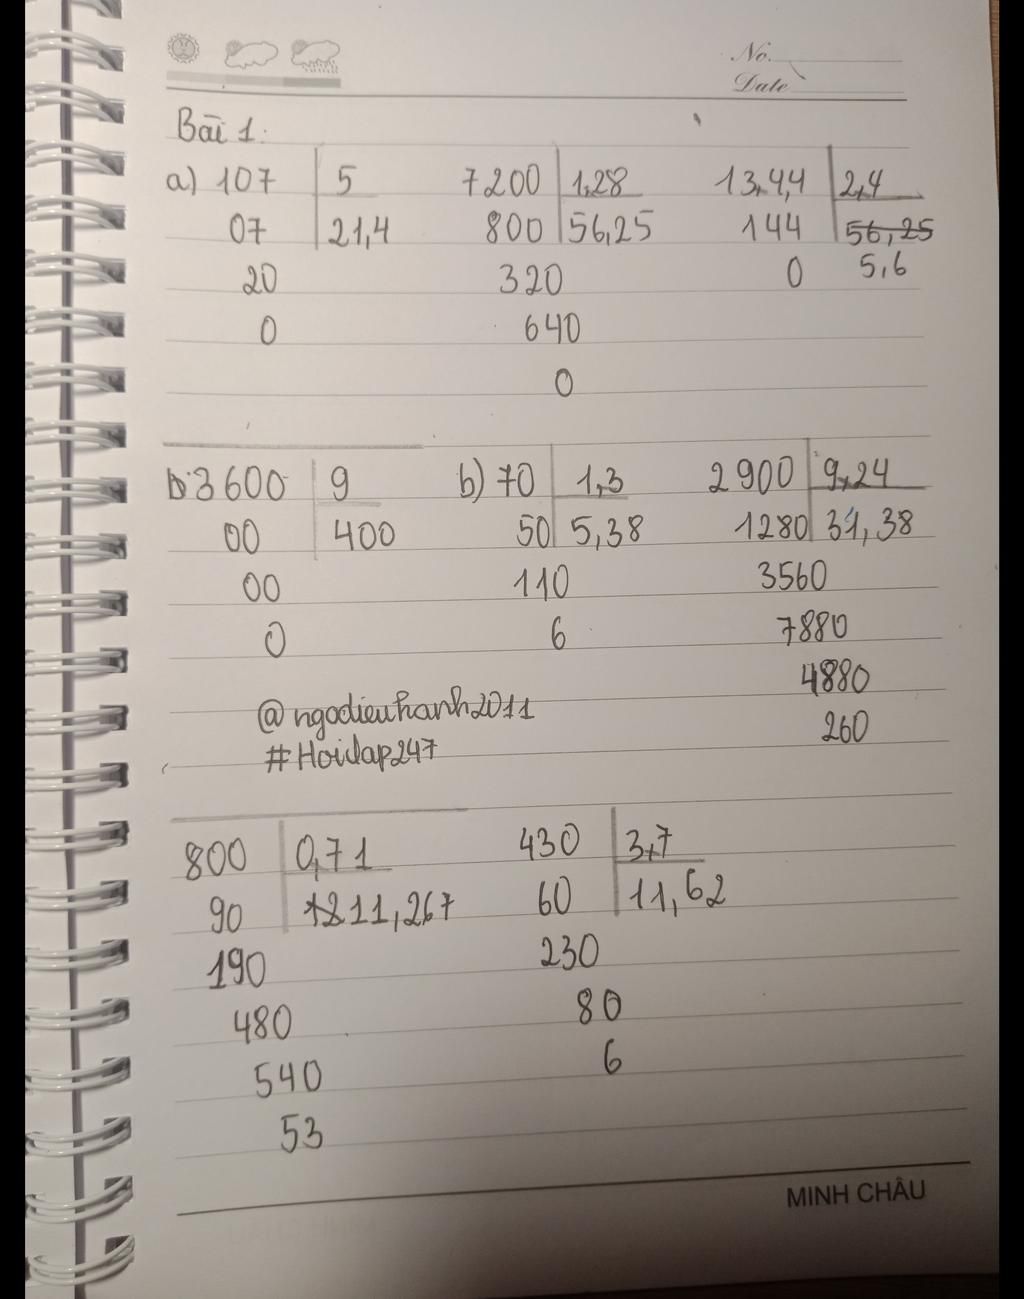 No.
Date
Bài 1:
a) 107 5 7200 1,28 13,4,4 2,4
07 21,4 800 56,25 144 56,25
20 320 0 5,6
0 640
0
b. 3600 9 b) 70 1,3 2900 9,24
00 400 50 5,38 1280 31,38
00 110 3560
0 6 7880
4880
@ngodieuhanh2011 260
#Hoidap247
800 0,71 430 3,7
90 1211,267 60 11,62
190 230
480 80
540 6
53
MINH CHÂU